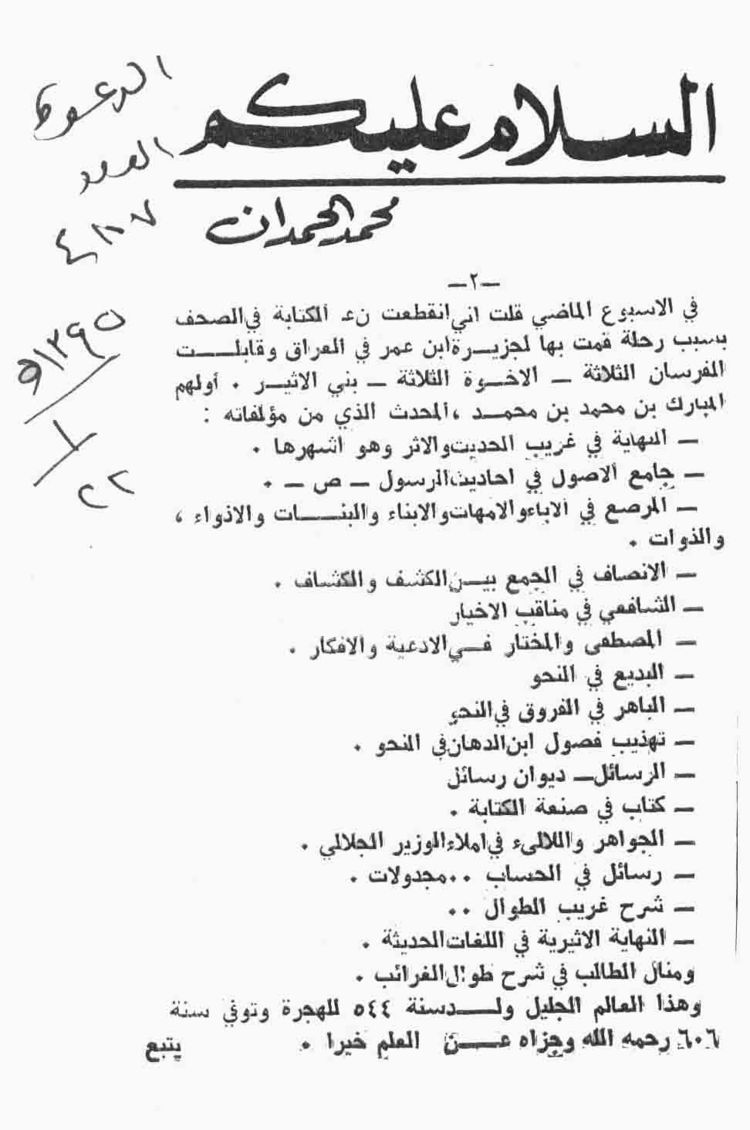 السلام عليكم
محمد الحمدان
الدعوة
العدد
٤٨٧
١٣٩٥هـ
١
٢٢
—٢—
في الاسبوع الماضي قلت اني انقطعت نعـ الكتابة في الصحف
بسبب رحلة قمت بها لجزيرة ابن عمر في العراق وقابلت
الفرسان الثلاثة — الاخوة الثلاثة — بني الاثير . أولهم
المبارك بن محمد بن محمد ، المحدث الذي من مؤلفاته :
— النهاية في غريب الحديث والاثر وهو اشهرها .
— جامع الاصول في احاديث الرسول — ص — .
— المرصع في الاباء والامهات والابناء والبنات والاذواء ،
والذوات .
— الانصاف في الجمع بين الكشف والكشاف .
— الشافعي في مناقب الاخيار
— المصطفى والمختار في الادعية والافكار .
— البديع في النحو
— الباهر في الفروق في النحو
— تهذيب فصول ابن الدهان في النحو .
— الرسائل — ديوان رسائل
— كتاب في صنعة الكتابة .
— الجواهر واللالىء في املاء الوزير الجلالي .
— رسائل في الحساب .. مجدولات .
— شرح غريب الطوال ..
— النهاية الاثيرية في اللغات الحديثة .
ومنال الطالب في شرح طوال الغرائب .
وهذا العالم الجليل ولد سنة ٥٤٤ للهجرة وتوفي سنة
٦٠٦ رحمه الله وجزاه عن العلم خيرا .
يتبع